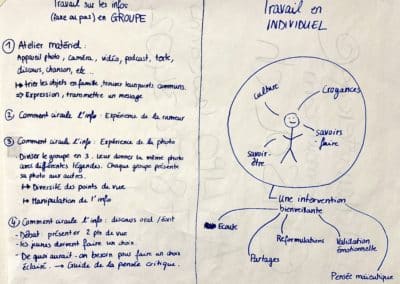 Travail sur les infos
(fake ou pas) en GROUPE
① Atelier matériel :
Appareil photo, caméra, vidéo, podcast, texte,
discours, chanson, etc..
↳ trier les objets en famille, trouver leurs points communs.
⇒ Expression, transmettre un message
② Comment circule l'info : Expérience de la rumeur
③ Comment circule l'info : Expérience de la photo
- Diviser le groupe en 3. Leur donner la même photo
avec différentes légendes. Chaque groupe présente
sa photo aux autres.
↳ Diversité des points de vue
↳ Manipulation de l'info
④ Comment circule l'info : discours oral / écrit
- Débat : présenter 2 pts de vue
- les jeunes doivent faire un choix.
- De quoi aurait-on besoin pour faire un choix
Éclairé. → Guide de la pensée critique.
Travail en
INDIVIDUEL
Culture
Croyances
Savoirs
faire
Savoir-
être
Une intervention
bienveillante
Ecoute
Partages
Reformulations
Validation
émotionnelle
Pensée maïeutique